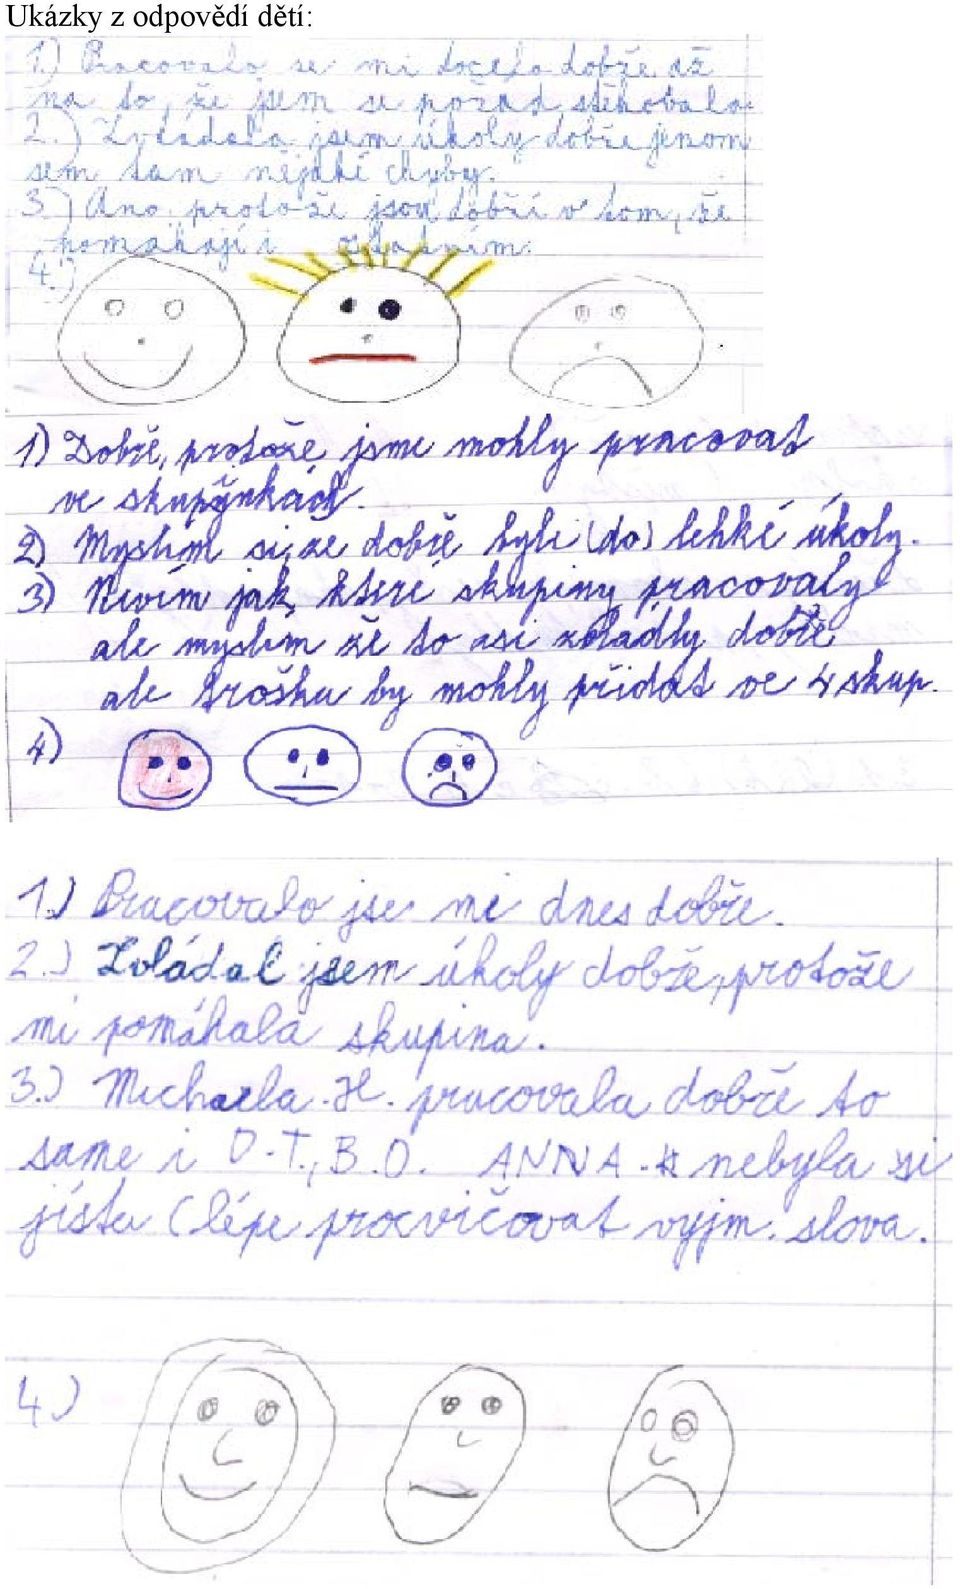 Ukázky z odpovědí dětí:
1.) Pracovalo se mi docela dobře až
na to, že jsem se pořád stěhovala.
2.) Zvládala jsem úkoly dobře jenom
sem tam nějaké chyby.
3.) Ano, protože jsou dobří v tom, že
pomáhají i ostatním.
4.)
1) Dobře, protože jsme mohly pracovat
ve skupýnkách.
2) Myslím si, že dobře byli (do) lehké úkoly.
3) Nevím jak, které skupiny pracovaly
ale myslím že to asi zvládly dobře
ale trošku by mohly přidat ve 4 skup.
4)
1.) Pracovalo jse mi dnes dobře.
2.) Zvládal jsem úkoly dobře, protože
mi pomáhala skupina.
3.) Michaela. H. pracovala dobře to
same i O.T., B.O. ANNA - nebyla si
jísta (lépe procvičovat vyjm. slova.
4.)